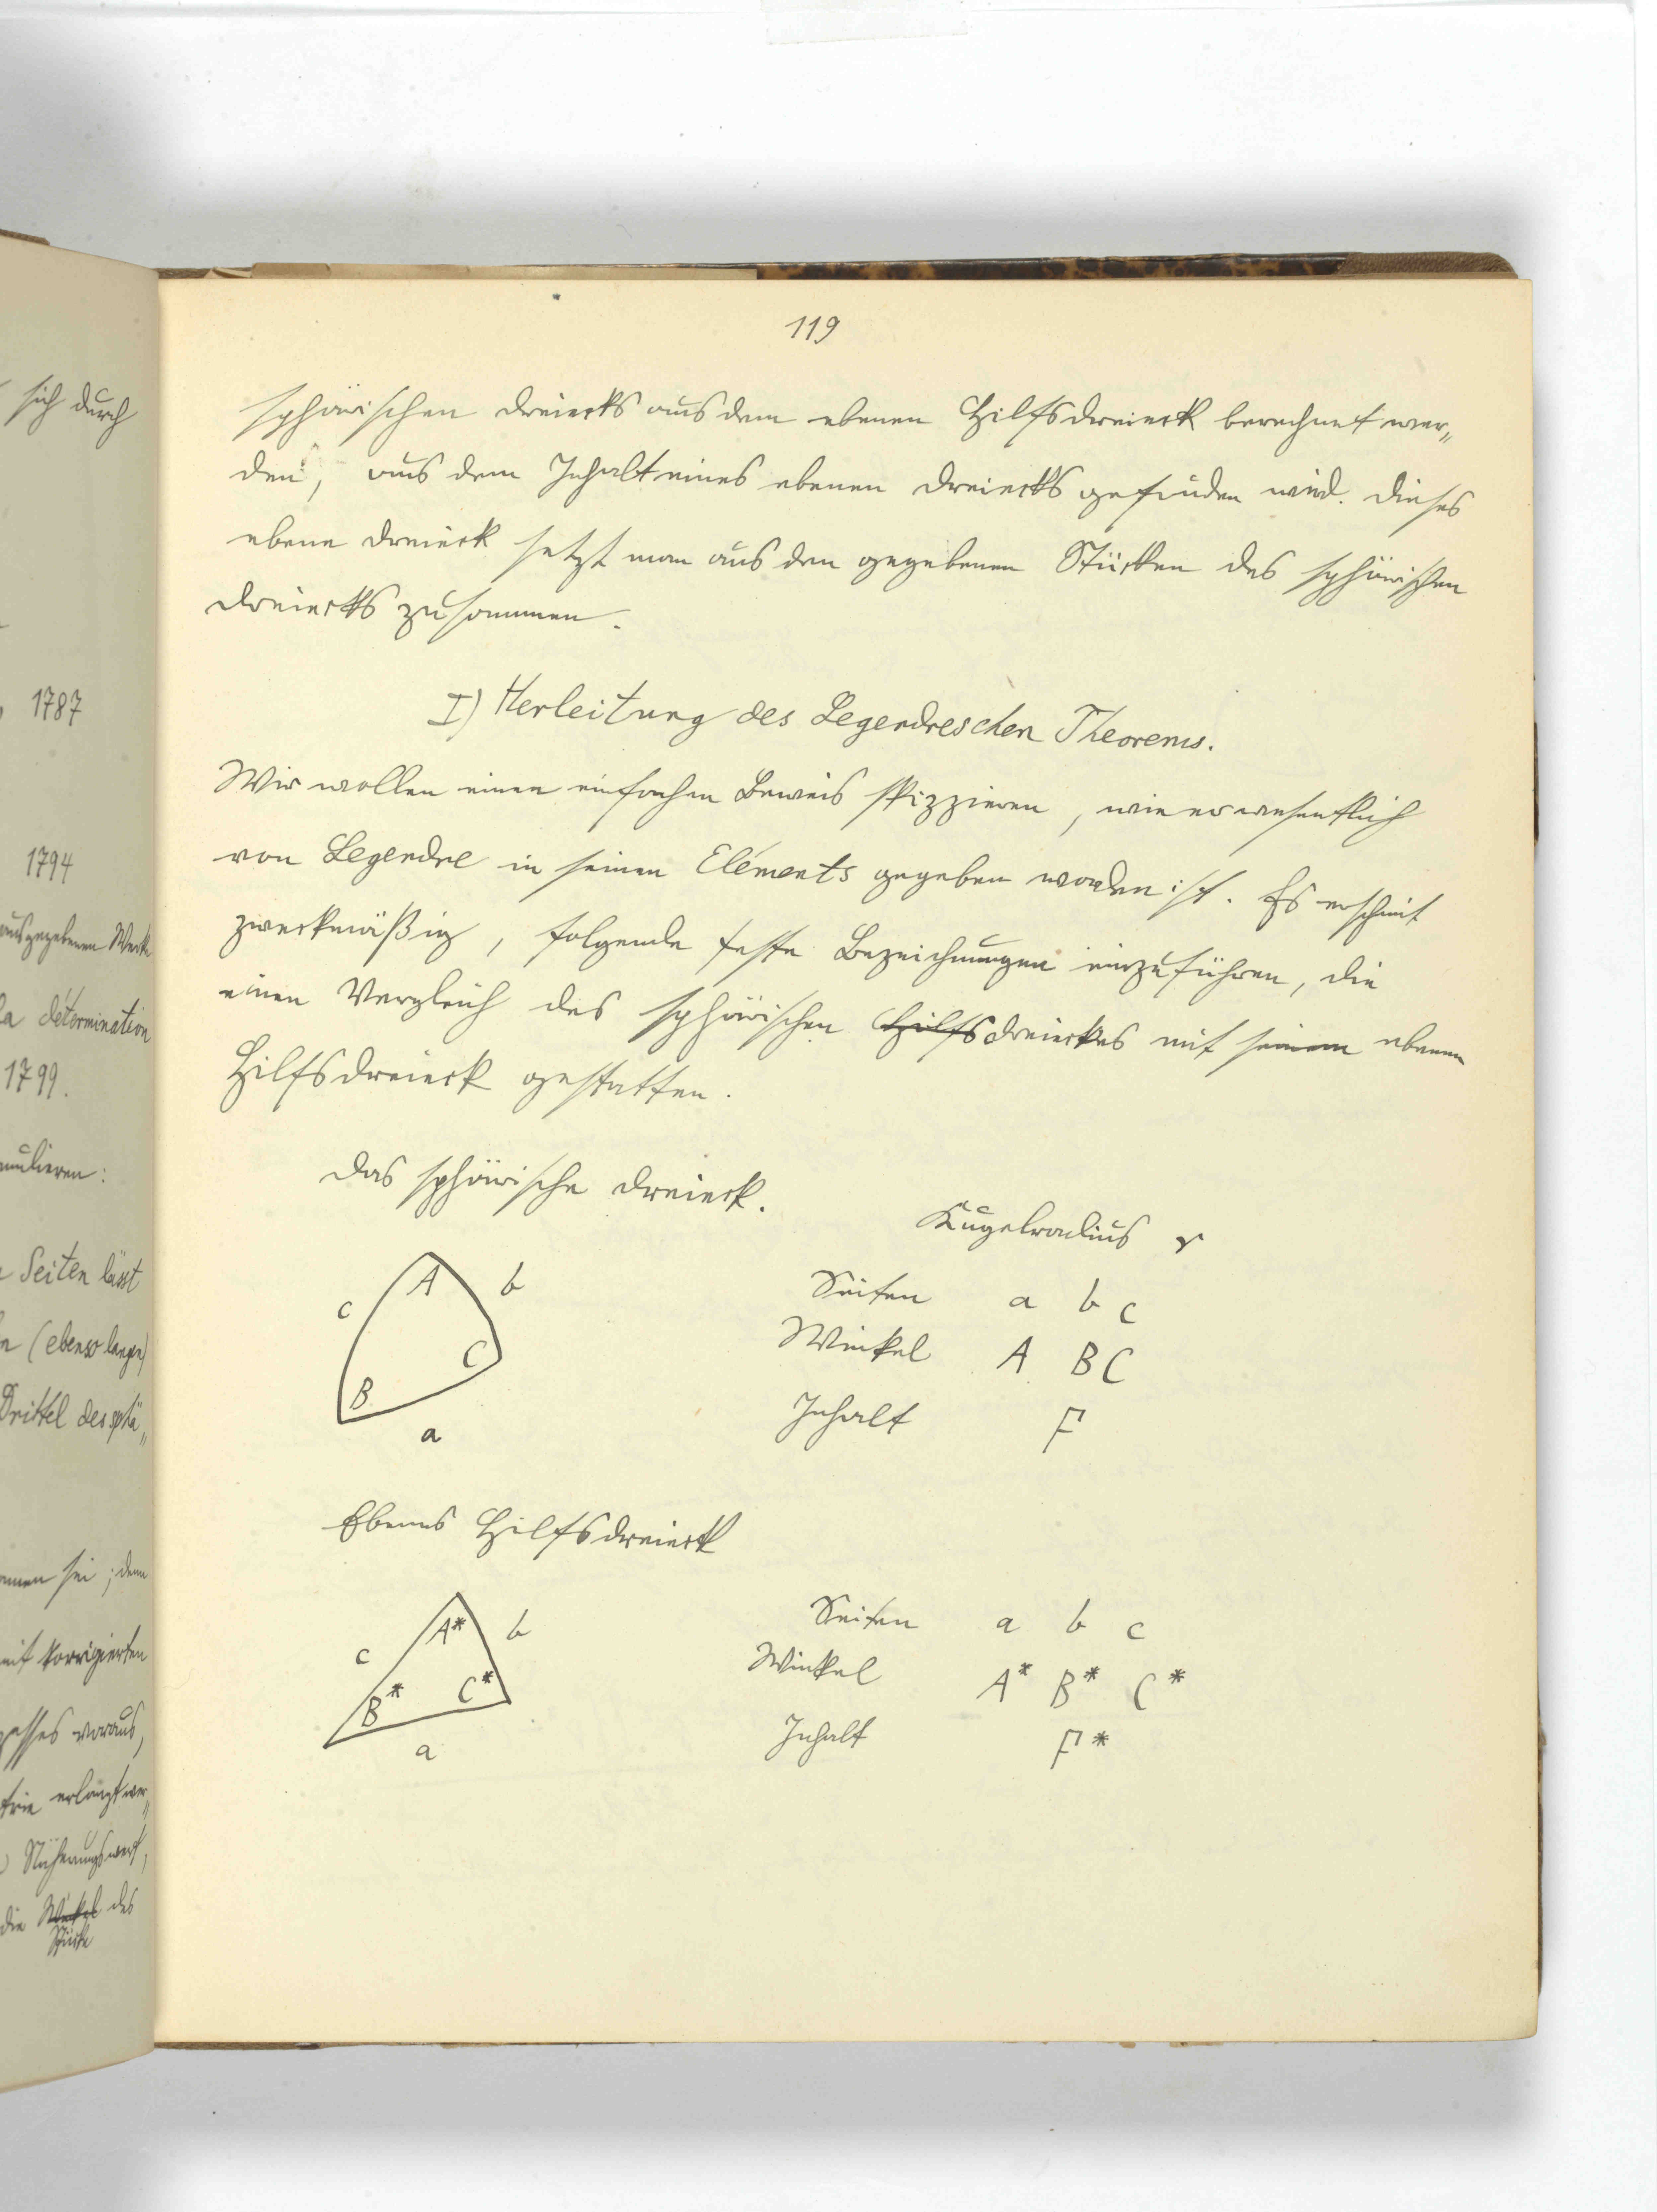 119
sphärischen Dreiecks aus dem ebenen Hilfsdreieck berechnet wer„
den, aus dem Inhalt eines ebenen Dreiecks gefunden wird. Dieses
ebene Dreieck setzt man aus den gegebenen Stücken des sphärischen
Dreiecks zusammen.
I) Herleitung des Legendreschen Theorems.
Wir wollen einen einfachen Beweis skizzieren, wie er wesentlich
von Legendre in seinen Eléments gegeben worden ist. Es erscheint
zweckmäßig, folgende feste Bezeichnungen einzuführen, die
einen Vergleich des sphärischen Hilfsdreieckes mit seinem ebenen
Hilfsdreieck gestatten.
Das sphärische Dreieck.
Kugelradius r
A b
c
C
B
a
Seiten a b c
Winkel A B C
Inhalt F
Ebenes Hilfsdreieck
A* b
c
C*
B*
a
Seiten a b c
Winkel A* B* C*
Inhalt F*
sich durch
1787
1794
ausgegebenen Werke
la détermination
1799.
mulieren:
Seiten lässt
(ebenso langen)
Drittel des sphä„
sei; denn
mit korrigierten
voraus,
erlangt wer„
Näherungswert,
die Winkel des
Stücke